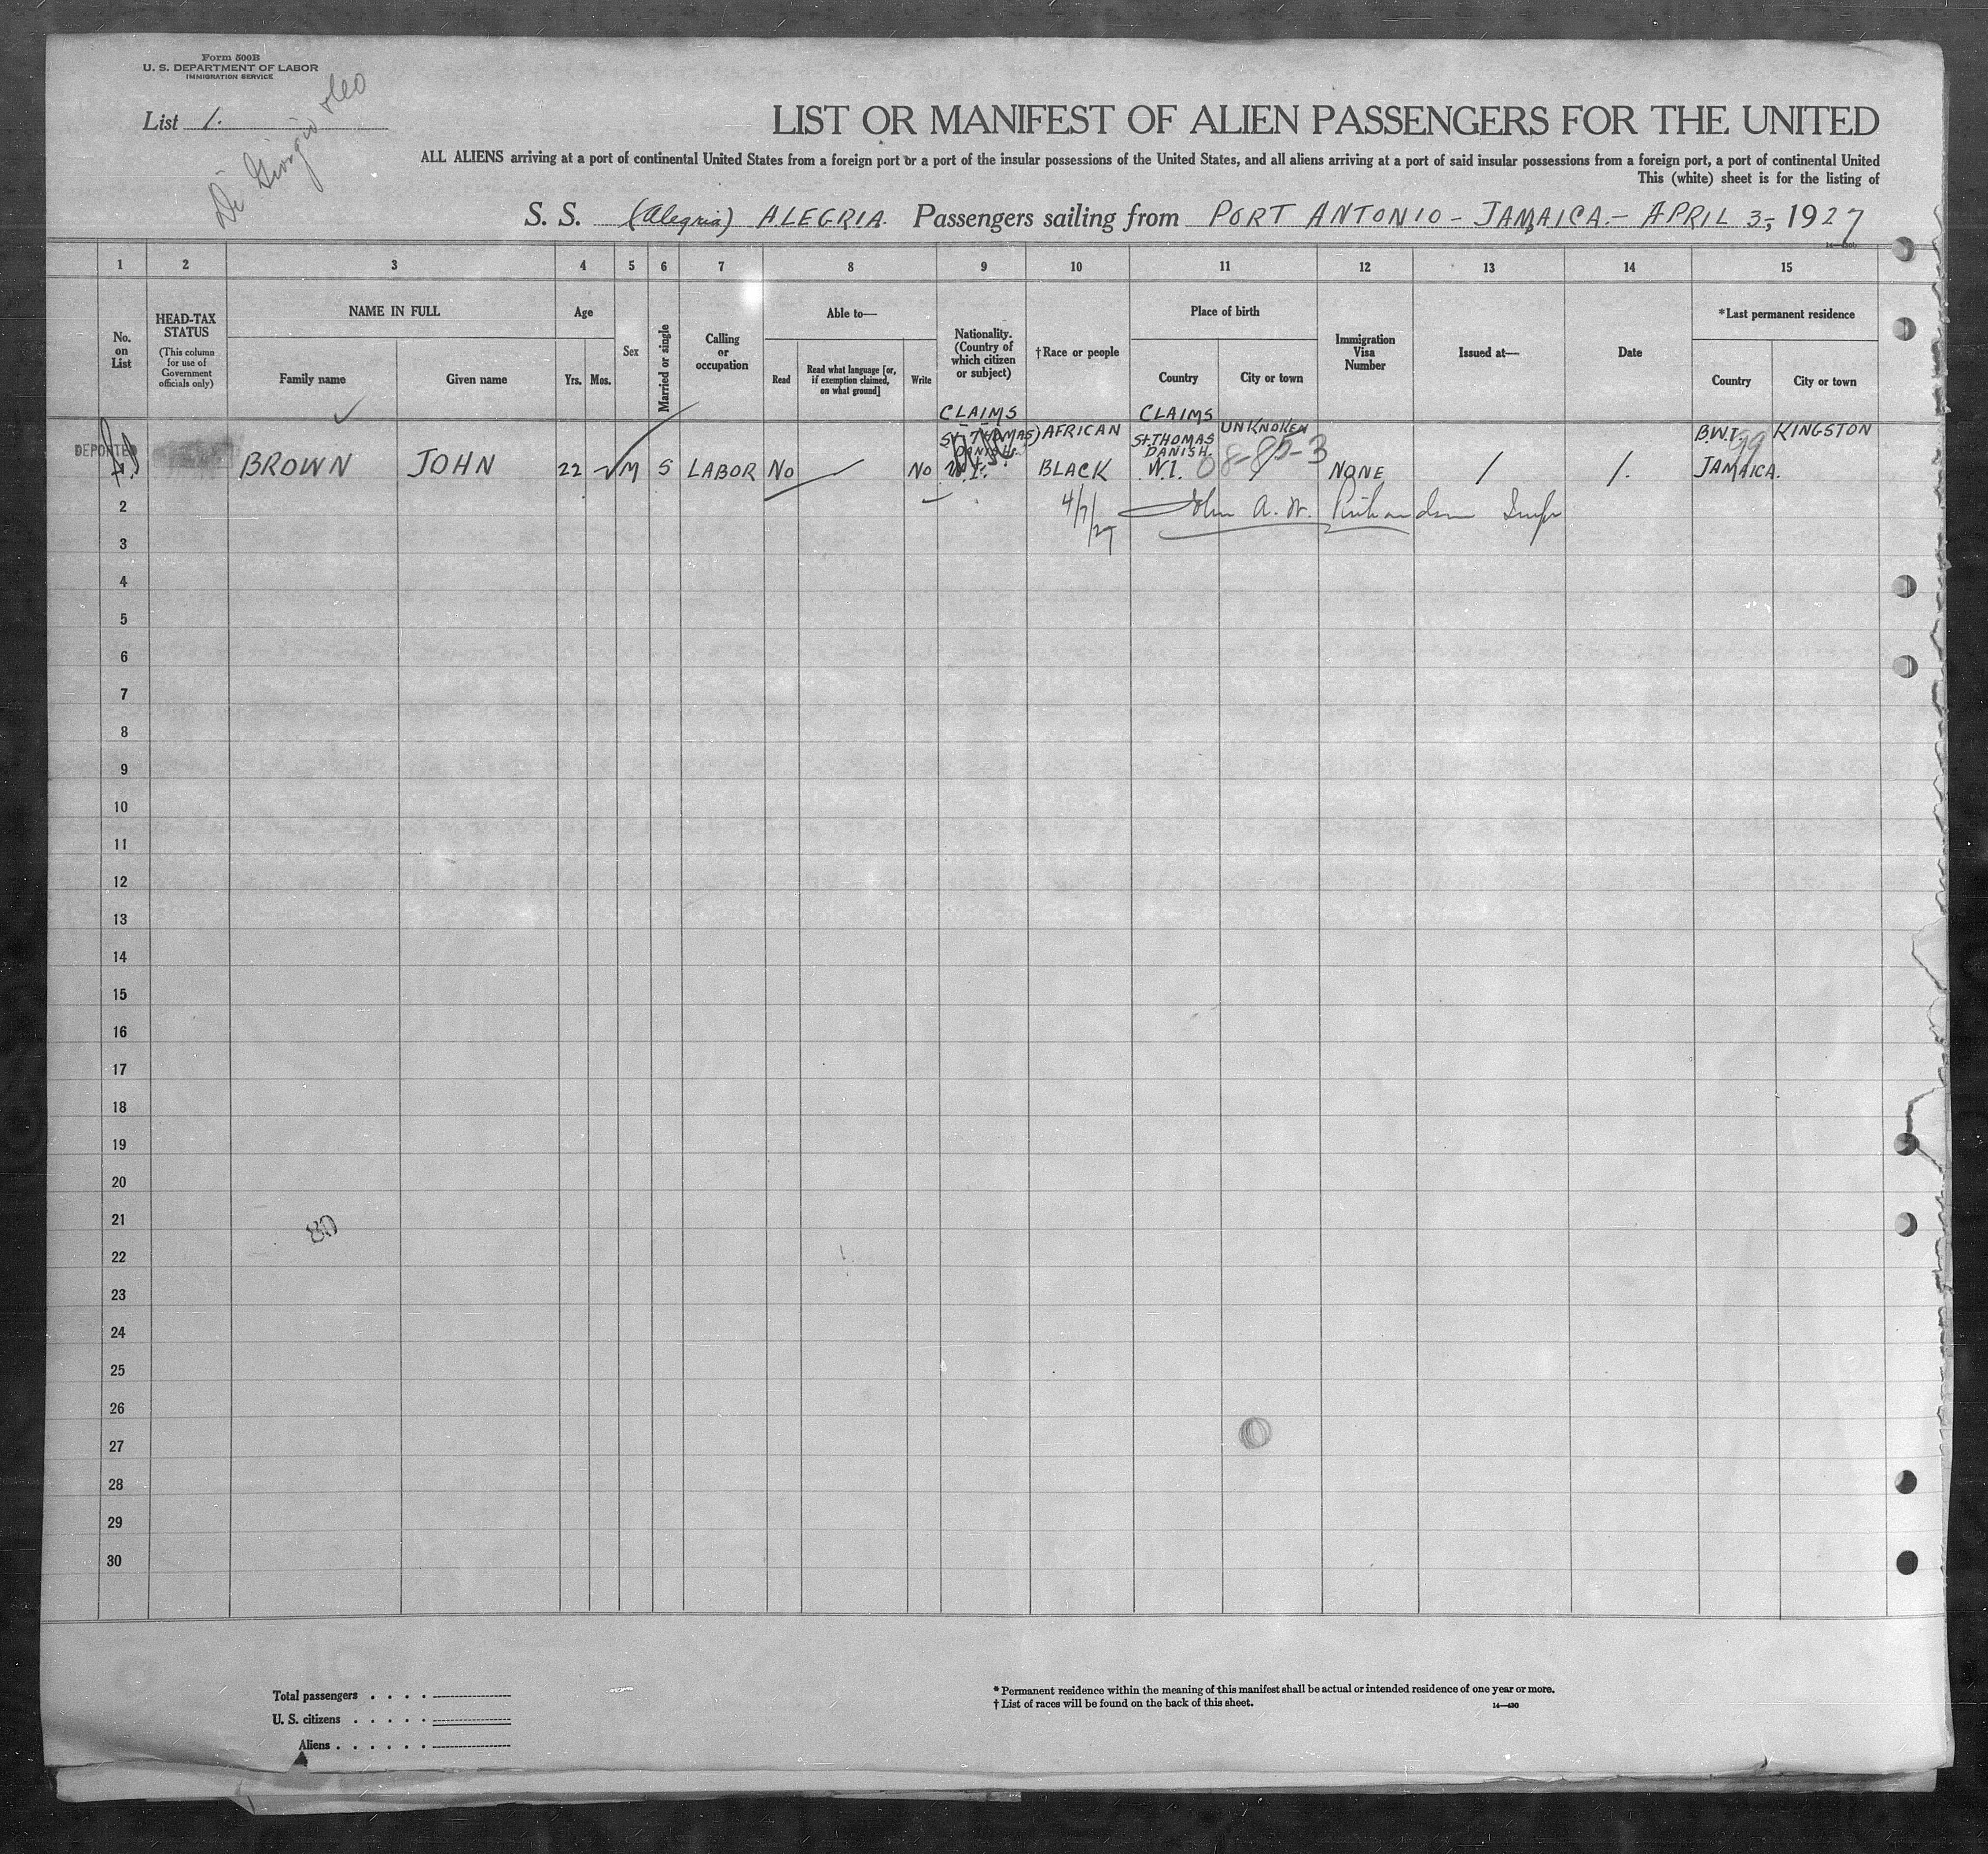 Form 500B
U. S. DEPARTMENT OF LABOR
IMMIGRATION SERVICE
List 1.
Di Giorgio
LIST OR MANIFEST OF ALIEN PASSENGERS FOR THE UNITED
ALL ALIENS arriving at a port of continental United States from a foreign port or a port of the insular possessions of the United States, and all aliens arriving at a port of said insular possessions from a foreign port, a port of continental United
This (white) sheet is for the listing of
S. S. (Alegria) ALEGRIA. Passengers sailing from PORT ANTONIO - JAMAICA. - APRIL 3-, 1927
1 2 3 4 5 6 7 8 9 10 11 12 13 14 15
No. on List
HEAD-TAX STATUS
(This column for use of Government officials only)
NAME IN FULL
Family name
Given name
Age
Yrs.
Mos.
Sex
Married or single
Calling or occupation
Able to—
Read
Read what language [or, if exemption claimed, on what ground]
Write
Nationality. (Country of which citizen or subject)
†Race or people
Place of birth
Country
City or town
Immigration Visa Number
Issued at—
Date
*Last permanent residence
Country
City or town
DEPORTED
BROWN JOHN 22 M S LABOR No / No
CLAIMS
ST. THOMAS)
DANISH.
W.I.
AFRICAN
BLACK
CLAIMS
St. THOMAS
DANISH.
W.I.
UNKNOWEN
08-85-3
NONE / /.
B.W.I.
99
JAMAICA.
KINGSTON
4/7/27 John A. W. Richardson Insp
2
3
4
5
6
7
8
9
10
11
12
13
14
15
16
17
18
19
20
21
22
23
24
25
26
27
28
29
30
Total passengers . . . .
U. S. citizens . . . . .
Aliens . . . . . .
* Permanent residence within the meaning of this manifest shall be actual or intended residence of one year or more.
† List of races will be found on the back of this sheet.
14—430